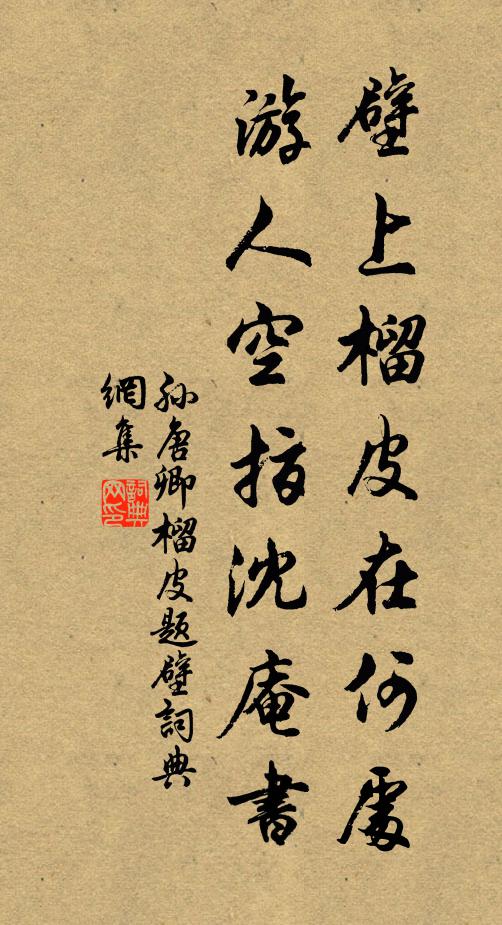 壁上榴皮在何處
游人空指沈庵書
孙唐卿榴皮题壁詞典
網集
詞典網印